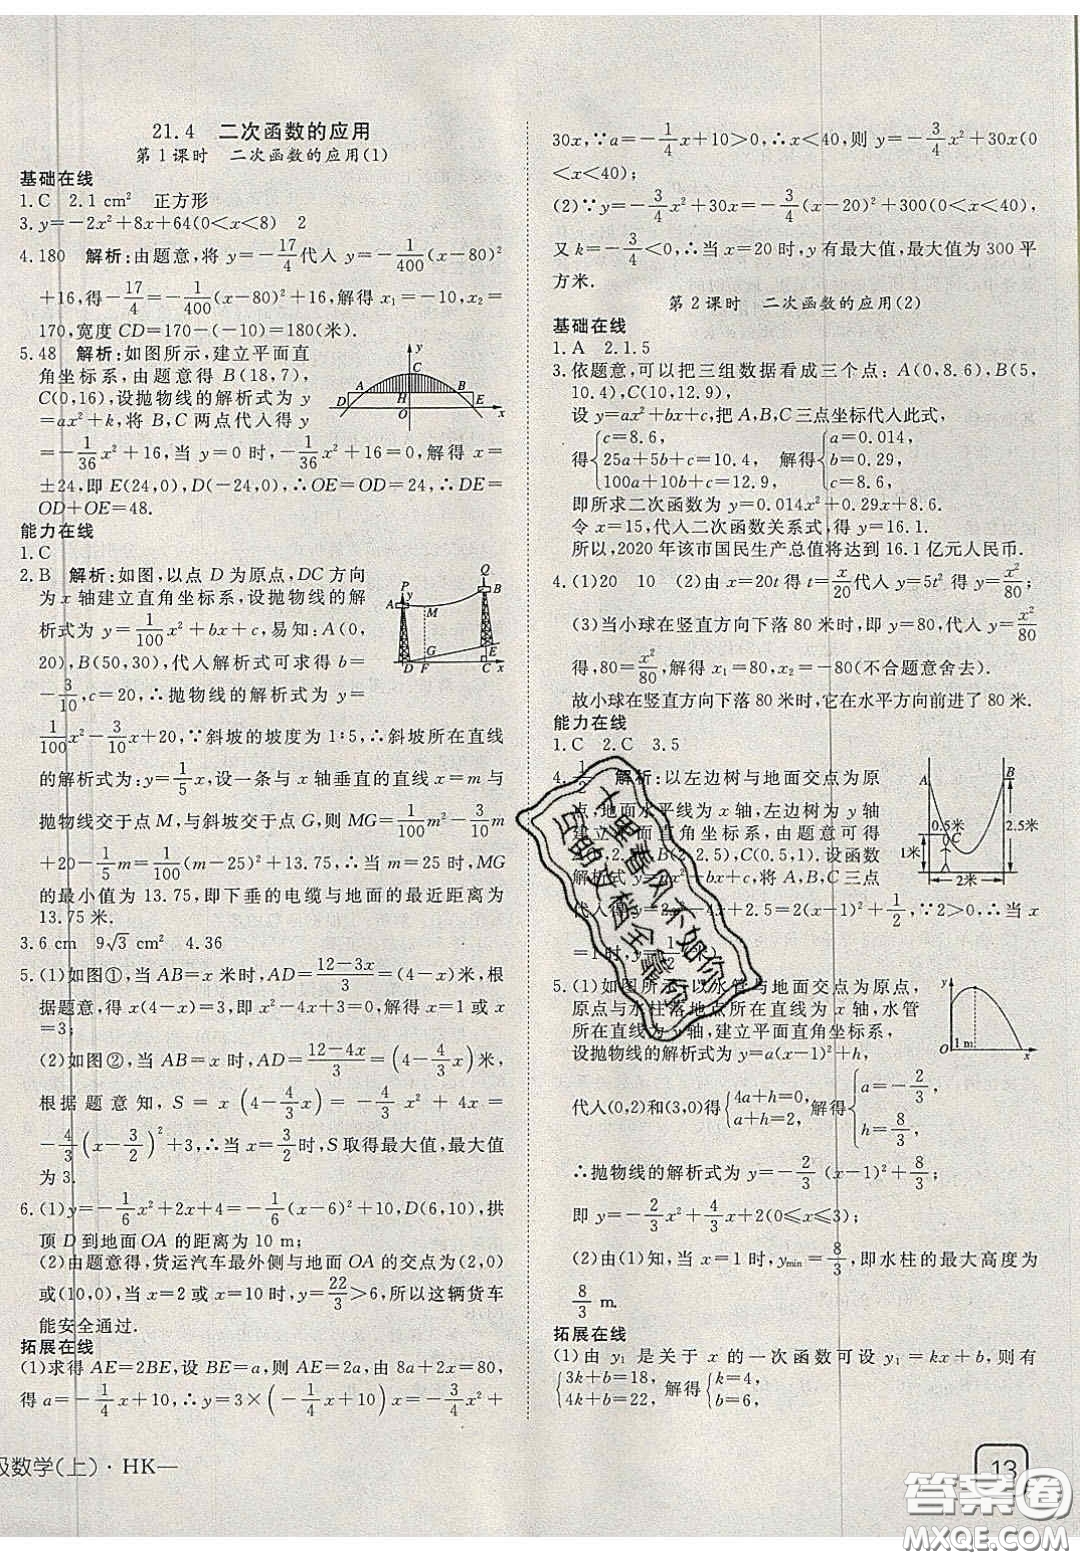 21.4 二次函数的应用
第1课时 二次函数的应用(1)
基础在线
1.C 2.1 cm² 正方形
3.y=-2x²+8x+64(0<x<8) 2
4.180 解析:由题意,将 y=-17/4代入 y=-1/400(x-80)²
+16,得-17/4=-1/400(x-80)²+16,解得 x₁=-10,x₂=
170,宽度 CD=170-(-10)=180(米).
5.48 解析:如图所示,建立平面直
角坐标系,由题意得 B(18,7),
C(0,16),设抛物线的解析式为 y
=ax²+k,将 B,C 两点代入得 y
=-1/36x²+16,当 y=0 时,-1/36x²+16=0,解得 x=
±24,即 E(24,0),D(-24,0),∴OE=OD=24,∴DE=
OD+OE=48.
y
C
A
B
D
H
E
O
x
能力在线
1.C
2.B 解析:如图,以点 D 为原点,DC 方向
为 x 轴建立直角坐标系,设抛物线的解
析式为 y=1/100x²+bx+c,易知:A(0,
20),B(50,30),代入解析式可求得 b=
-3/10,c=20,∴抛物线的解析式为 y=
1/100x²-3/10x+20,∵斜坡的坡度为 1∶5,∴斜坡所在直线
的解析式为:y=1/5x,设一条与 x 轴垂直的直线 x=m 与
抛物线交于点 M,与斜坡交于点 G,则 MG=1/100m²-3/10m
+20-1/5m=1/100(m-25)²+13.75,∴当 m=25 时,MG
的最小值为 13.75,即下垂的电缆与地面的最近距离为
13.75 米.
P
y
Q
A
M
B
G
E
D
F
C
x
3.6 cm 9√3 cm² 4.36
5.(1)如图①,当 AB=x 米时,AD=12-3x/3=(4-x)米,根
据题意,得 x(4-x)=3,即 x²-4x+3=0,解得 x=1 或 x
=3;
(2)如图②,当 AB=x 时,AD=12-4x/3=(4-4/3x)米,
根据题意知,S=x(4-4/3x)=-4/3x²+4x=
-4/3(x-3/2)²+3,∴当 x=3/2时,S 取得最大值,最大值
为 3.
6.(1)y=-1/6x²+2x+4=-1/6(x-6)²+10,D(6,10),拱
顶 D 到地面 OA 的距离为 10 m;
(2)由题意得,货运汽车最外侧与地面 OA 的交点为(2,0)
或(10,0),当 x=2 或 x=10 时,y=22/3>6,所以这辆货车
能安全通过.
拓展在线
(1)求得 AE=2BE,设 BE=a,则 AE=2a,由 8a+2x=80,
得 a=-1/4x+10,∴y=3×(-1/4x+10)x=-3/4x²+
级数学(上)·HK—
30x,∵a=-1/4x+10>0,∴x<40,则 y=-3/4x²+30x(0
<x<40);
(2)∵y=-3/4x²+30x=-3/4(x-20)²+300(0<x<40),
又 k=-3/4<0,∴当 x=20 时,y 有最大值,最大值为 300 平
方米.
第2课时 二次函数的应用(2)
基础在线
1.A 2.1.5
3.依题意,可以把三组数据看成三个点:A(0,8.6),B(5,
10.4),C(10,12.9),
设 y=ax²+bx+c,把 A,B,C 三点坐标代入此式,
得{c=8.6,
25a+5b+c=10.4,
100a+10b+c=12.9,
解得{a=0.014,
b=0.29,
c=8.6,
即所求二次函数为 y=0.014x²+0.29x+8.6,
令 x=15,代入二次函数关系式,得 y=16.1.
所以,2020 年该市国民生产总值将达到 16.1 亿元人民币.
4.(1)20 10 (2)由 x=20t 得 t=x/20代入 y=5t² 得 y=x²/80;
(3)当小球在竖直方向下落 80 米时,即 y=80,代入 y=x²/80
得,80=x²/80,解得 x₁=80,x₂=-80(不合题意舍去).
故小球在竖直方向下落 80 米时,它在水平方向前进了 80 米.
能力在线
1.C 2.C 3.5
4.1/2 解析:以左边树与地面交点为原
点,地面水平线为 x 轴,左边树为 y 轴
建立平面直角坐标系,
(0,2.5),B(2,2.5),C(0.5,1).设函数
解析式 y=ax²+bx+c,将 A,B,C 三点
代入得 y=2x²-4x+2.5=2(x-1)²+1/2,∵2>0,∴当 x
=1 时,
A
B
0.5米
C
1米
2.5米
2米
5.(1)如图所示,以水管与地面交点为原点,
原点与水柱落地点所在直线为 x 轴,水管
所在直线为 y 轴,建立平面直角坐标系,
设抛物线的解析式为 y=a(x-1)²+h,
代入(0,2)和(3,0)得{4a+h=0,
a+h=2,
解得{a=-2/3,
h=8/3,
∴抛物线的解析式为 y=-2/3(x-1)²+8/3;
即 y=-2/3x²+4/3x+2(0≤x≤3);
(2)由(1)知,当 x=1 时,y_min=8/3,即水柱的最大高度为
8/3 m.
y
O
1 m
x
拓展在线
(1)由 y₁ 是关于 x 的一次函数可设 y₁=kx+b,则有
{3k+b=18,
4k+b=22,
解得{k=4,
b=6,
13
十里春风不如你
互助文档全靠你
答案圈
MXQE.COM